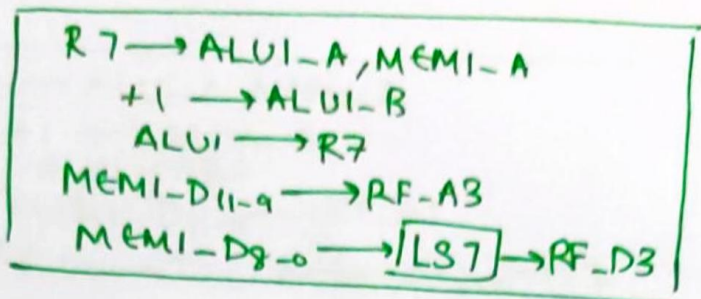 R7 → ALU1_A, MEM1_A
+1 → ALU1_B
ALU1 → R7
MEM1_D11-9 → RF_A3
MEM1_D8-0 → LS7 → RF_D3